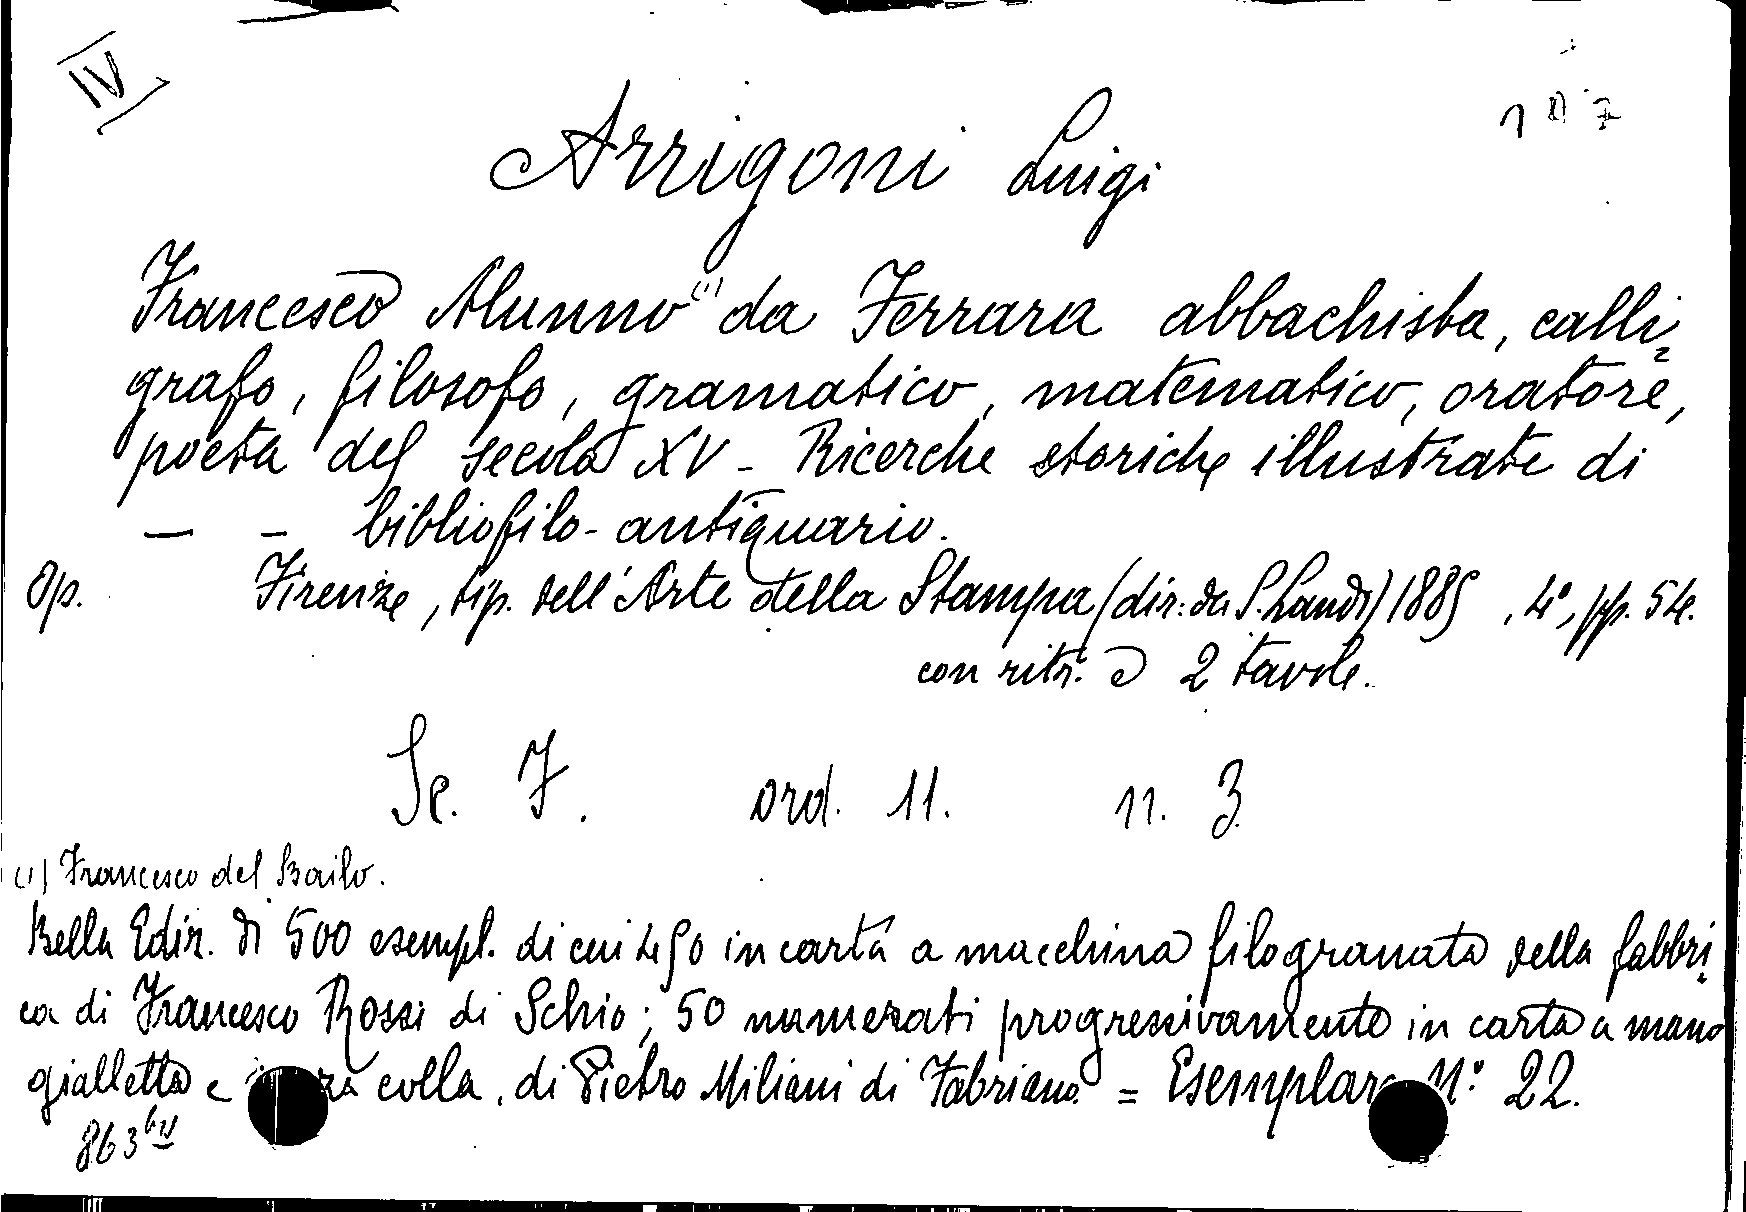 IV
Arrigoni Luigi
Francesco Alunno (1) da Ferrara abbachista, calli=
grafo, filosofo, gramatico, matematico, oratore,
poeta del secolo XV - Ricerche storiche illustrate di
— - bibliofilo-antiquario.
Op. Firenze, tip. dell'Arte della Stampa (dir: da S. Landi) 1885, 4°, pp. 54.
con ritr. e 2 tavole.
Sc. F. ord. 11. n. 3.
(1) Francesco del Bailo.
Bella Ediz. di 500 esempl. di cui 450 in carta a macchina filogranata della fabbri=
ca di Francesco Rossi di Schio; 50 numerati progressivamente in carta a mano
gialletta e colla, di Pietro Miliani di Fabriano = Esemplare N.° 22.
863 bis